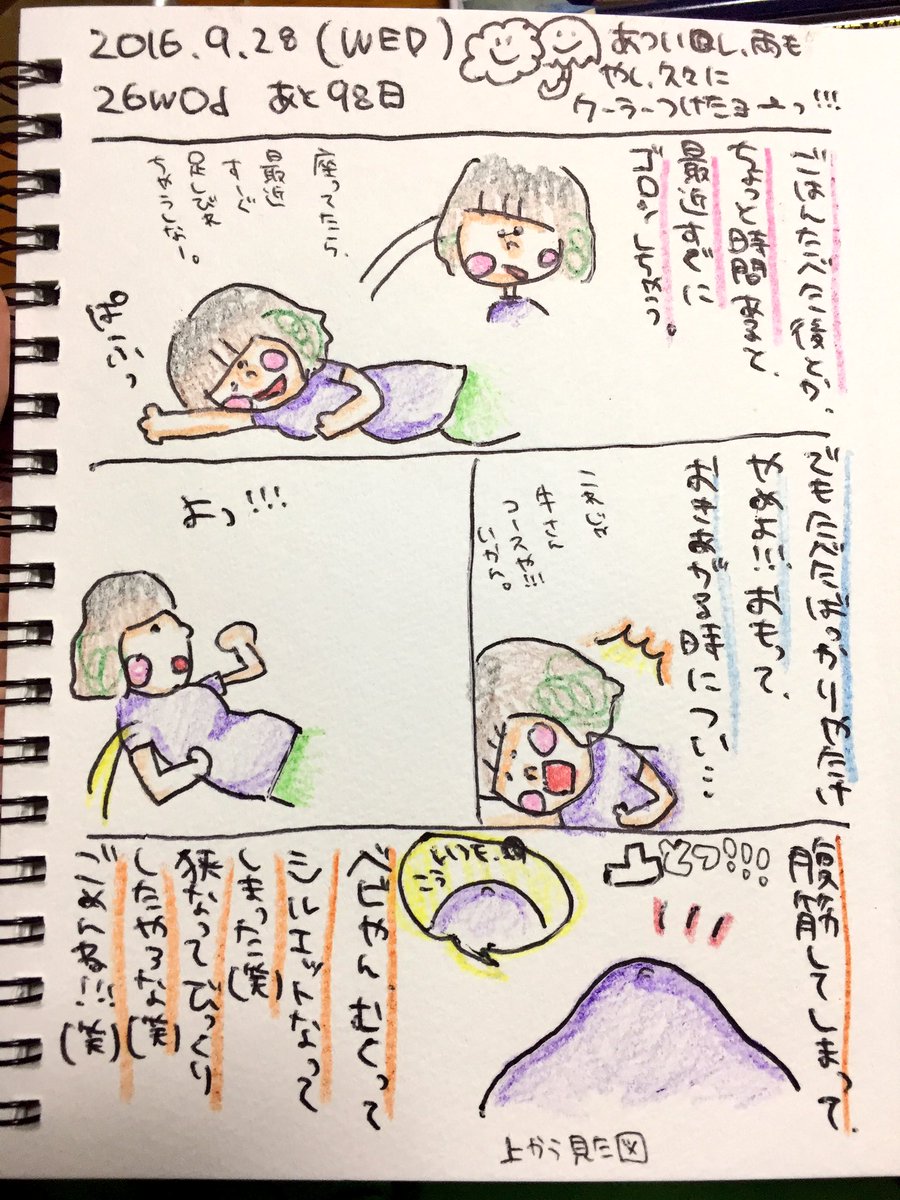 2016.9.28(WED)
26w0d あと98日
あついし、雨も
やし、久々に
クーラーつけたヨーっ!!!
ごはんたべた後とか、
ちょっと時間あると、
最近すぐに
ゴロンしちゃう。
座ってたら、
最近
すーぐ
足しびれ
ちゃうしなー。
でも食べてばっかりやダケ
やめよ!!!おもって、
おきあがる時につい…
これじゃ
牛さん
コースや!!!
いかん。
よっ!!!
腹筋してしまって、
凸とつ!!!
いつも
こう
べビちゃん むぐって
シルエットなって
しまった(笑)
狭なってびっくり
したやろな(笑)
ごめんね!!!(笑)
上から見た図